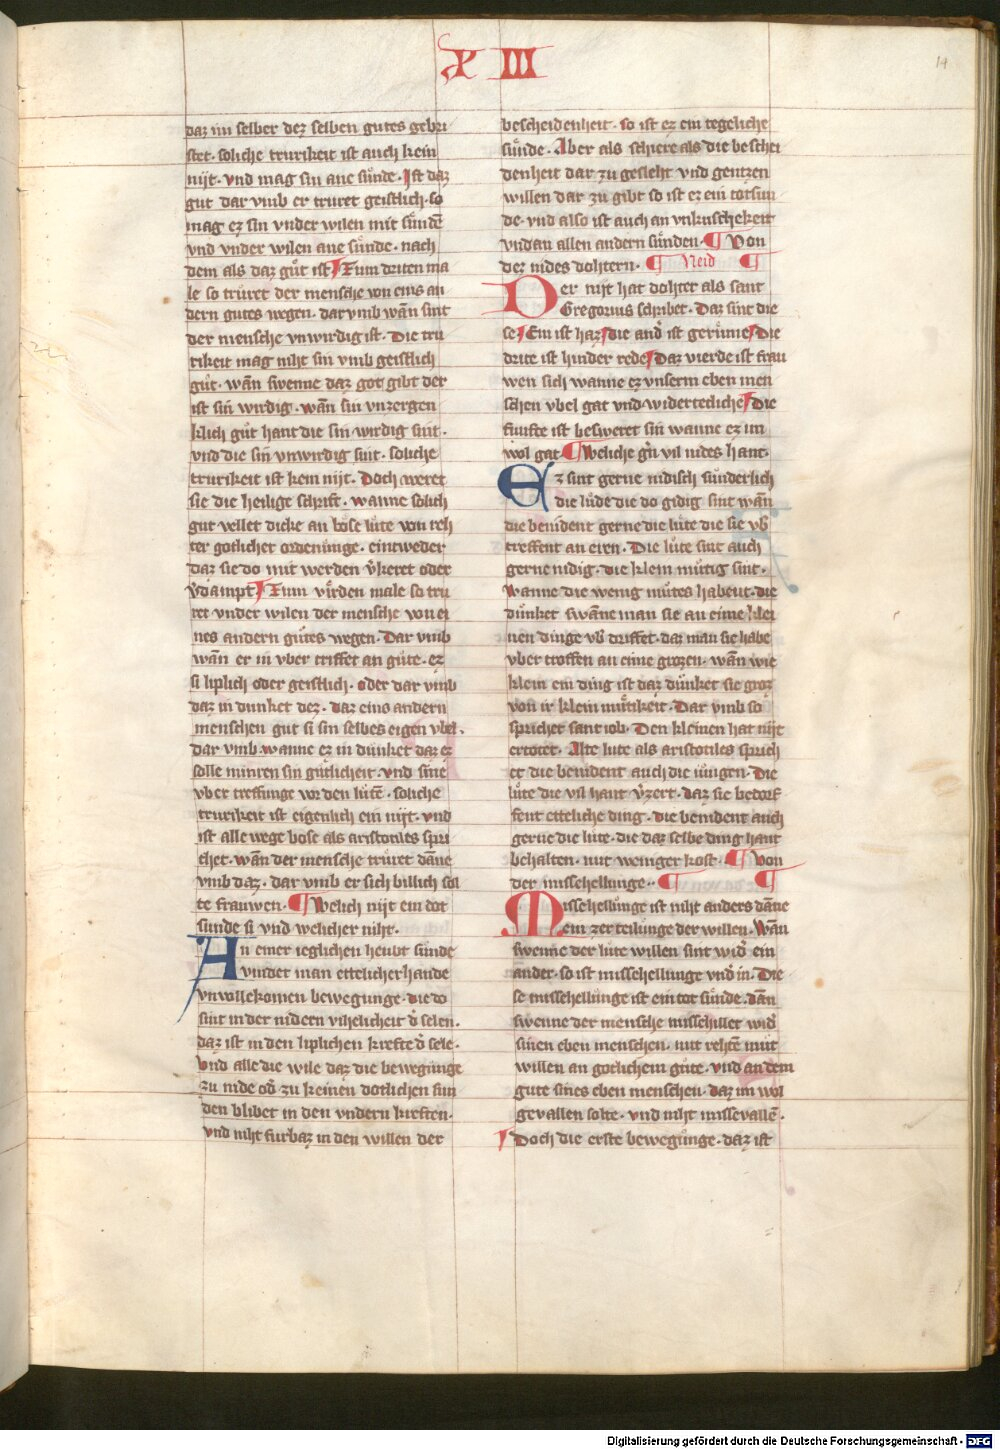 X III
14
daz im selber dez selben gutes gebri
stet. soliche trurikeit ist auch kein
nijt. vnd mag sin ane sünde. Ist daz
gut dar vmb er truret geistlich. so
mag ez sin vnder wilen mit sündē
vnd vnder wilen ane sünde. nach
dem als daz gůt ist Zum driten ma
le so trůret der mensche von eins an
dern gutes wegen. dar vmb wān sint
der mensche vnwirdig ist. Die tru
rikeit mag niht sin vmb geistlich
gůt. wān swenne daz got gibt der
ist sin wirdig. wān sin vnzergen
klich gůt hant die sin wirdig sint.
vnd die sin vnwirdig sint. soliche
trurikeit ist kein nijt. Doch weret
sie die heilige schrift. wanne solich
gut vellet dicke an böse lute von reh
ter gotlicher ordenunge. eintweder
daz sie do mit werden v̉keret oder
v̉dampt Zum vîrden male so tru
ret vnder wilen der mensche von ei
nes andern gůtes wegen. Dar vmb
wān er in vber triffet an gůte. ez
si liplich oder geistlich. oder dar vmb
daz in dunket dez. daz eins andern
menschen gut si sin selbes eigen vbel.
dar vmb wanne ez in dunket daz ez
sölle minren sin gůtlicheit. vnd sine
vber treffunge vor den lütē. soliche
trurikeit ist eigenlich ein nijt. vnd
ist alle wege bose als aristotiles spri
chet. wān der mensche trůret dāne
vmb daz. dar vmb er sich billich sol
te frauwen. Welich nijt ein dot
sunde si vnd welicher niht.
An einer ieglichen heubt sünde
vindet man ettelicher hande
vnvollekomen bewegunge. die do
sint in der nidern vihelicheit d̉ selen.
daz ist in den liplichen krefte d̉ sele.
vnd alle die wile daz die bewegunge
zu nide od̉ zu keinen dotlichen sun
den blibet in den vndern kreften.
vnd niht furbaz in den willen der
bescheidenheit. so ist ez ein tegeliche
sünde. Aber als schiere als die beschei
denheit dar zu gesleht vnd gentzen
willen dar zu gibt so ist ez ein totsun
de. vnd also ist auch an vnkuschekeit
vnd an allen andern sünden. Von
dez nides dohtern. Neid
Der nijt hat dohter als sant
Gregorius schribet. Daz sint die
se Ein ist haz die and̉ ist gerüne Die
drite ist hinder rede Daz vierde ist frau
wen sich wanne ez vnserm eben men
schen vbel gat vnd widertecliche Die
funfte ist besweret sin wanne ez im
wol gat Weliche gn̄ vil nides hant.
Ez sint gerne nidisch sunderlich
die lude die do gidig sint wān
die benident gerne die lüte die sie vb̉
treffent an eren. Die lůte sint auch
gerne nidig. die klein mütig sint.
wanne die wenig můtes habent. die
dunket swāne man sie an eime klei
nen dinge vb̉ driffet. daz man sie habe
vber troffen an eine grozen. wān wie
klein ein ding ist daz dünket sie groz
von ir klein mütikeit. Dar vmb so
sprichet sant iob. Den kleinen hat nijt
ertötet. Alte lute als aristotiles sprich
et die benident auch die iüngen. Die
lüte die vil hant v̉zert. daz sie bedorf
fent etteliche ding. die benident auch
gerne die lüte. die daz selbe ding hant
behalten. mit weniger kost. Von
der missehellunge.
Missehellunge ist niht anders dāne
ein zerteilunge der willen. Wān
swenne der lute willen sint wid̉ ein
ander. so ist missehellunge vnd̉ in. Die
se missehellunge ist ein tot sünde. dān
swenne der mensche missehillet wid̉
sinen eben menschen. mit rehtē mut
willen an gotlichem gůte. vnd an dem
gute sines eben menschen. daz im wol
gevallen solte. vnd niht missevallē.
Doch die erste bewegůnge. daz ist
Digitalisierung gefördert durch die Deutsche Forschungsgemeinschaft - DFG